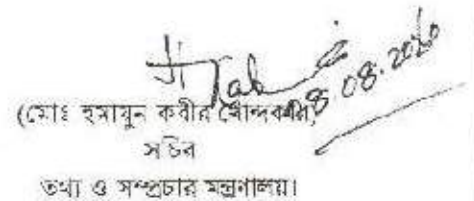 08.08.2020
(মোঃ হুমায়ুন কবীর খোন্দকার)
সচিব
তথ্য ও সম্প্রচার মন্ত্রণালয়।